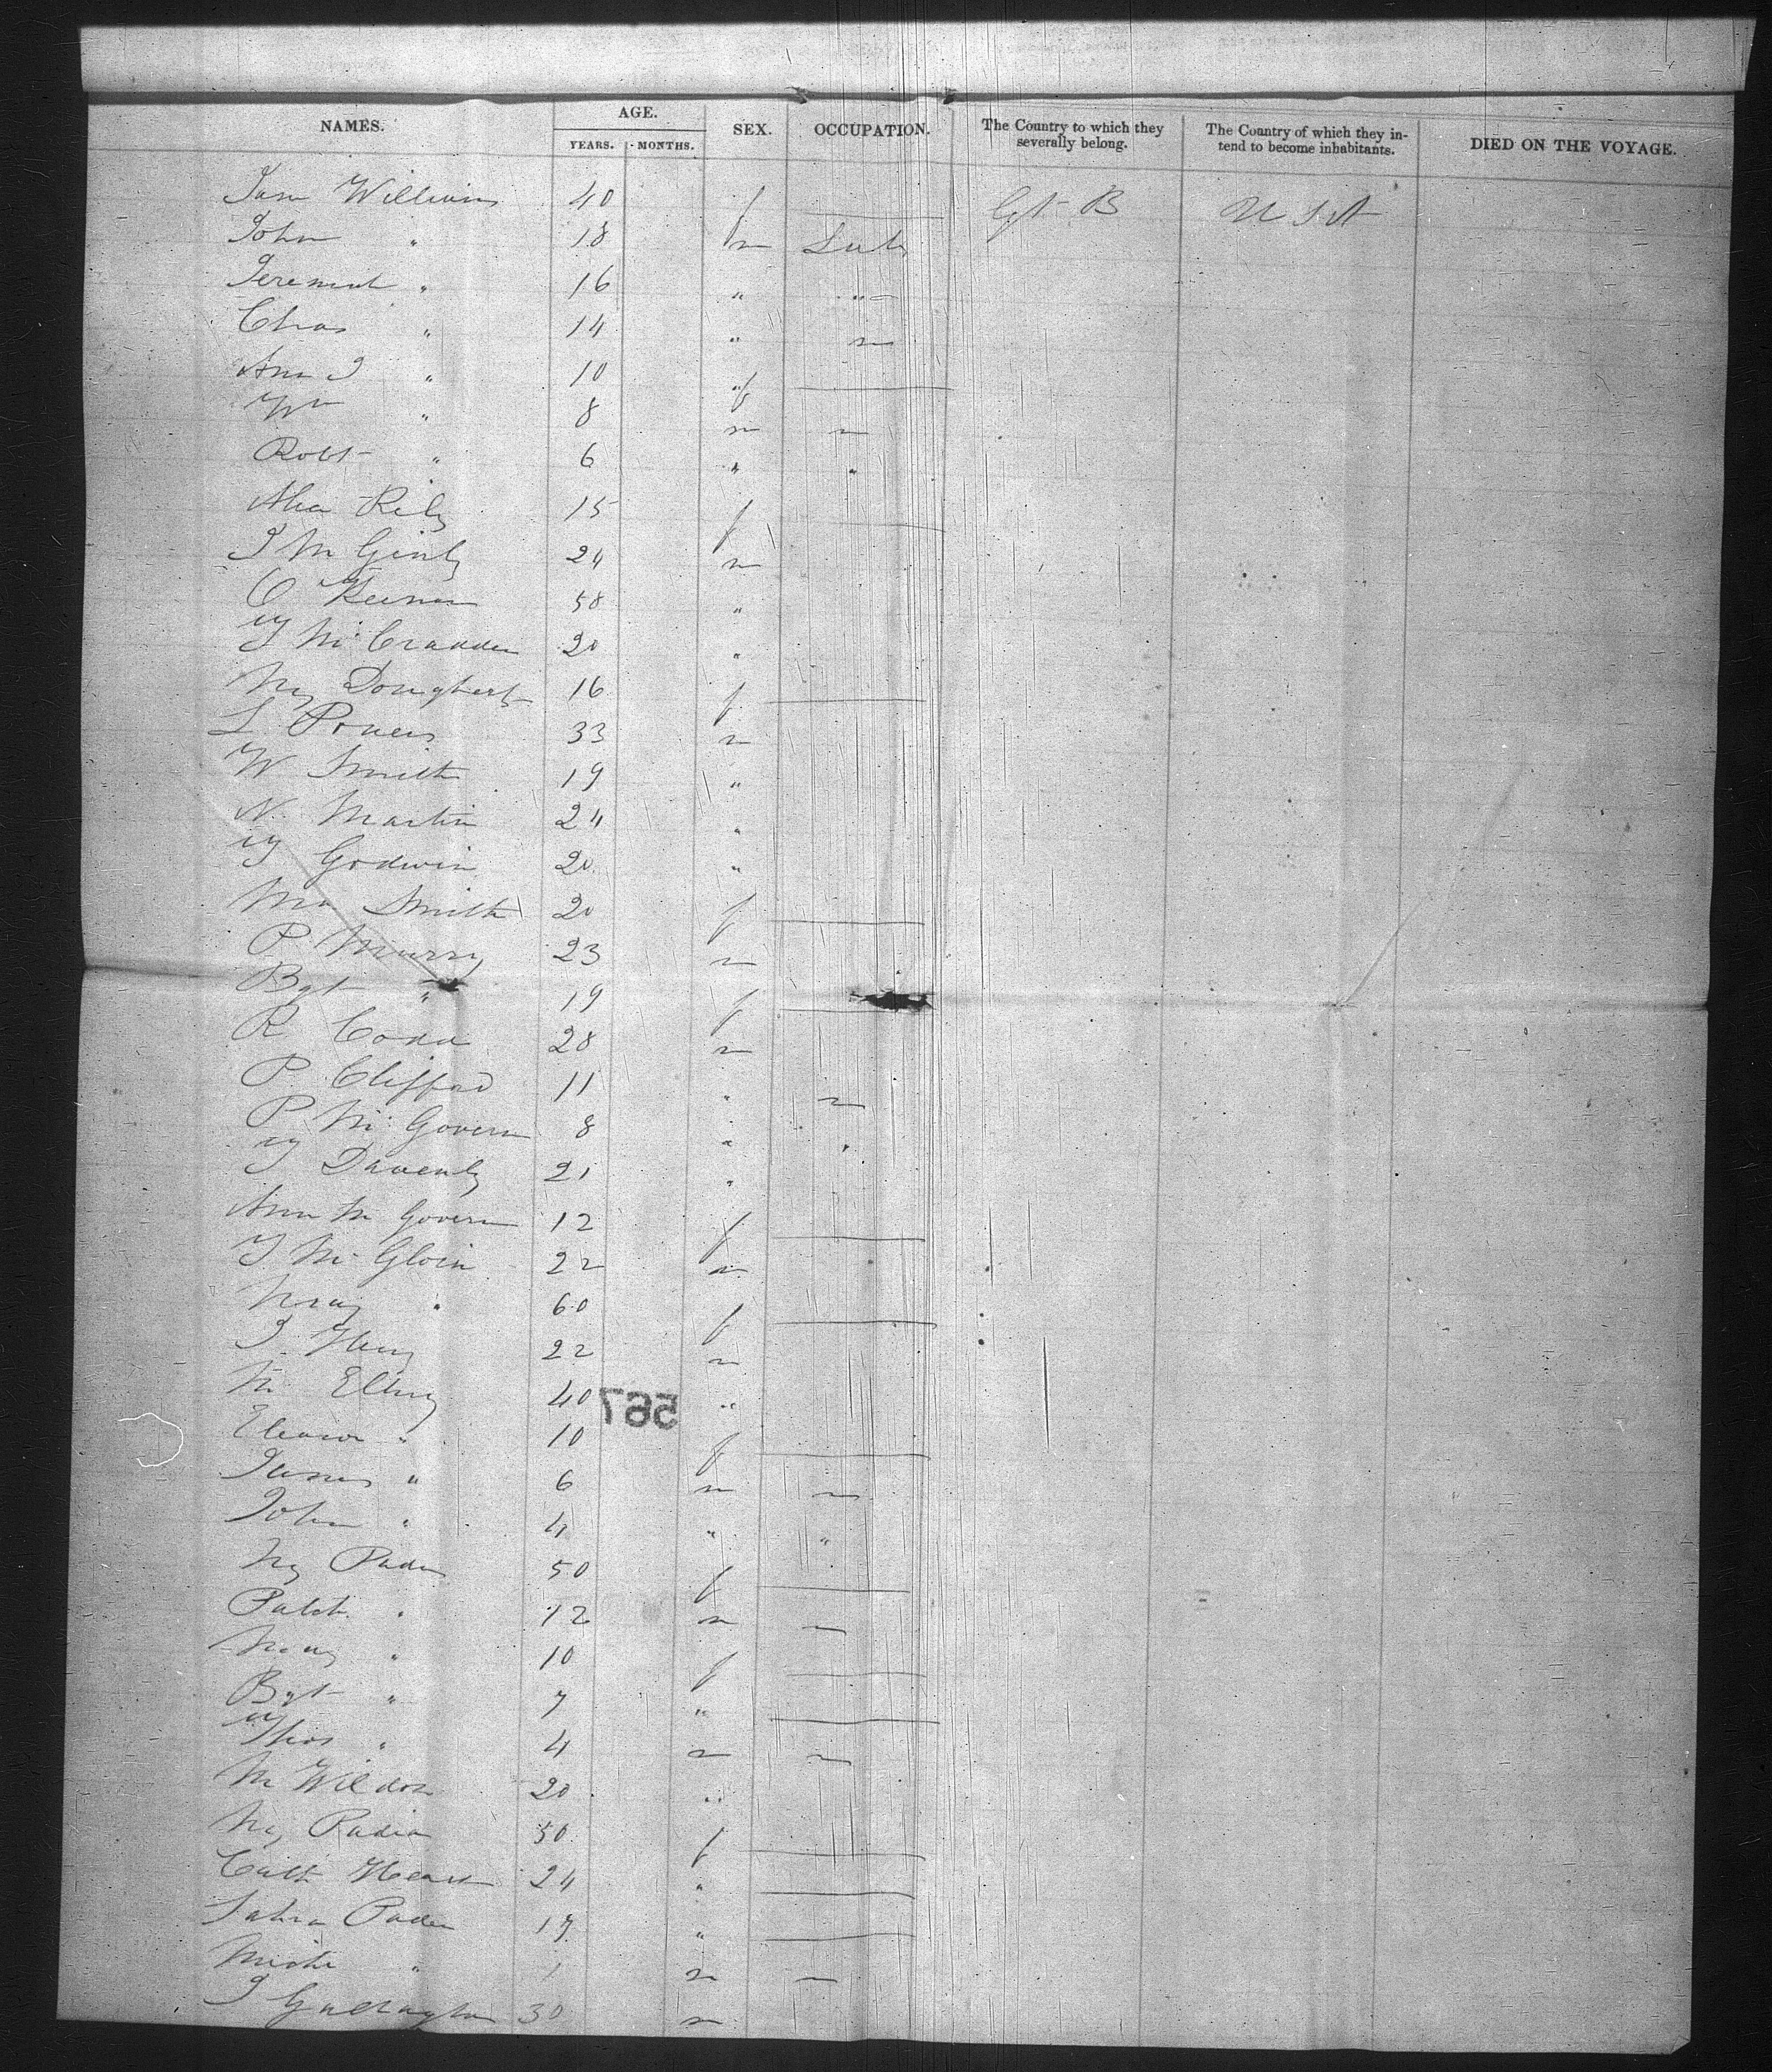 NAMES. AGE. YEARS. MONTHS. SEX. OCCUPATION. The Country to which they severally belong. The Country of which they intend to become inhabitants. DIED ON THE VOYAGE.
Jane Williams 40 f Gt B U S A
John " 18 m
Jeremiah " 16 " "
Chas " 14 "
Ann J " 10 f
Wm " 8 m
Robt " 6 " "
Riley 15 f
J McGinly 24 m
C Keenan 58 "
T McCradden 20 "
My Dougherty 16 f
L Powers 33 m
W Smith 19 "
N. Martin 24 "
T Godwin 20 "
Ma Smith 20 f
P Murry 23 m
Bgt " 19 f
R Codd 28 m
P Clifford 11 "
P McGovern 8 " "
T 21 "
Ann McGovern 12 f
J McGloin 22 m
Mary " 60 f
J. Henry 22 m
M 40 "
567
Eleanor " 10 f
James " 6 m
John " 4 " "
My Paden 50 f
Patck " 12 m
Mary " 10 f
Bgt " 7 "
Thos " 4 m
M Wildon 20 "
My 50 f
Cath 24 "
Paden 17 "
" 1 m
J Gallagher 30 m